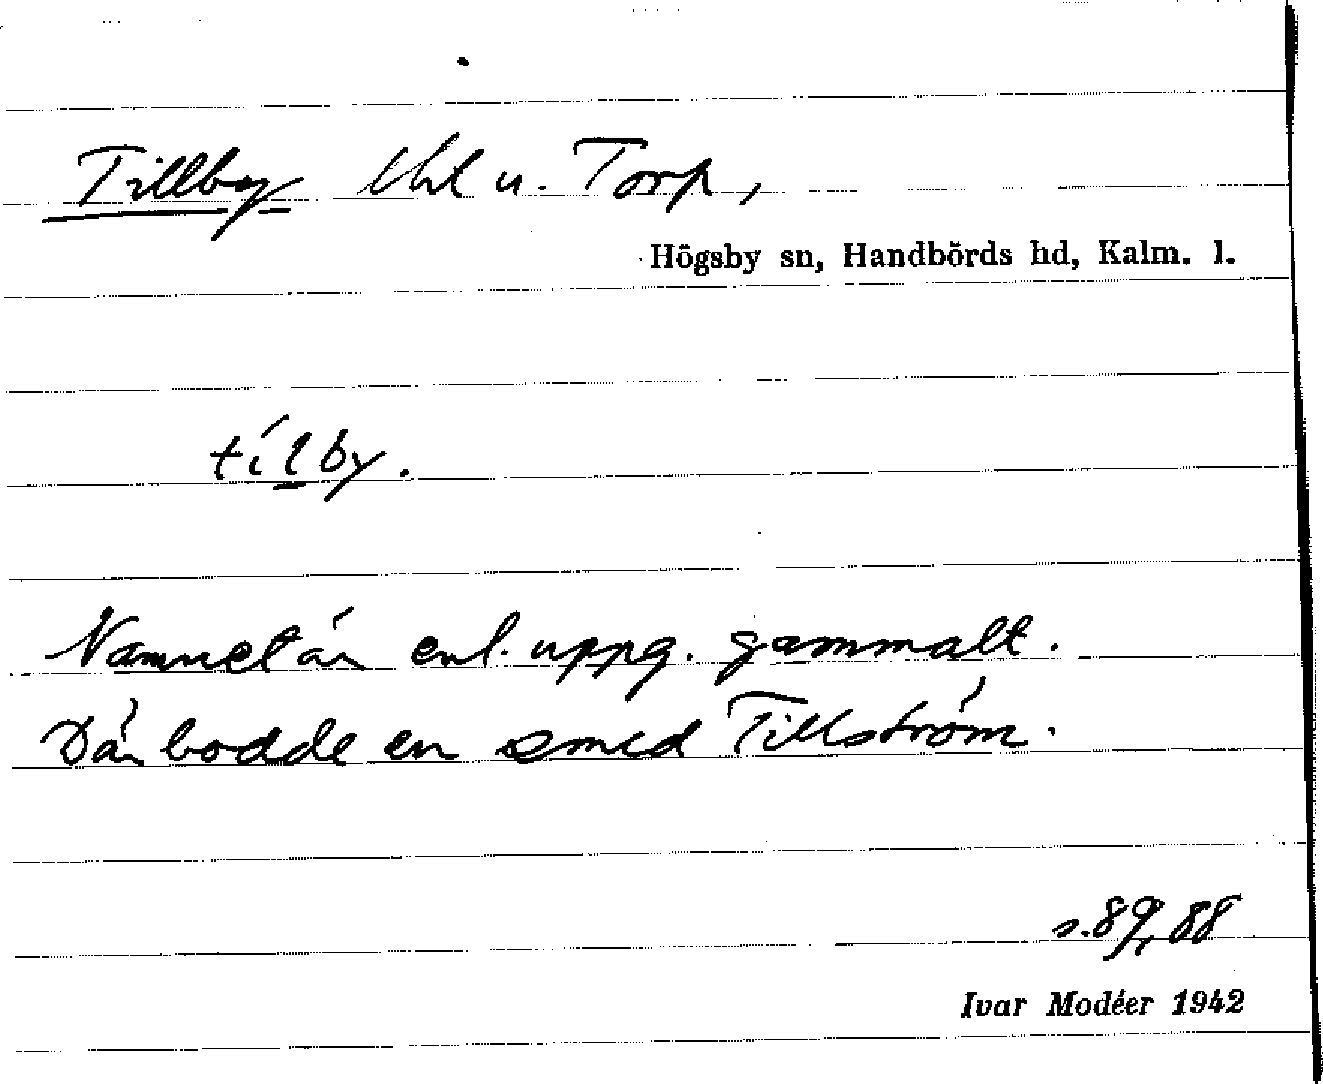 Tillby lht u. Torp,
Högsby sn, Handbörds hd, Kalm. l.
tílby.
Namnet är enl. uppg. gammalt.
Där bodde en smed Tillström.
s. 89, 88
Ivar Modéer 1942